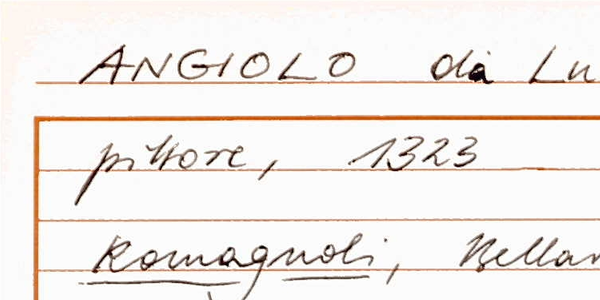 ANGIOLO da Lu
pittore, 1323
Romagnoli, Bellar